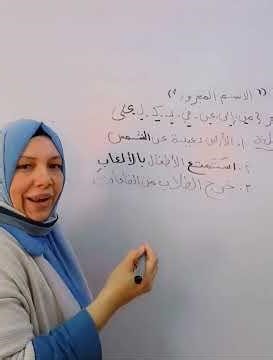 (( الاسم المجرور ))
من، إلى، عن، في، بـ، كـ، لـ، على
١. الأرض بعيدة عن الشمس
٢. استمتع الأطفال بالألعاب
٣. خرج الطلاب من القاعات